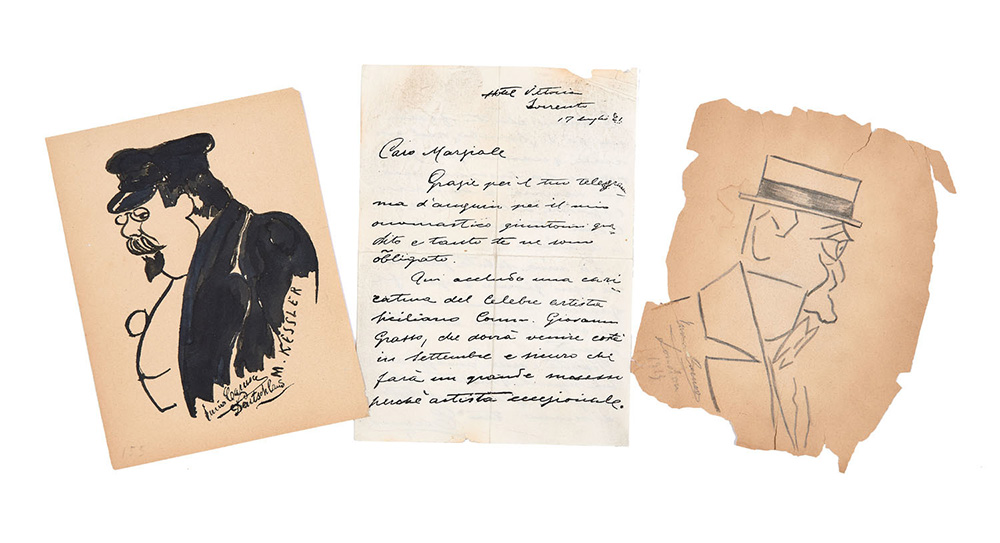 M. KESSLER
Enrico Caruso
Deutschland
153
Hotel Vittoria
Sorrento
17 Luglio 21
Caro Marziale
Grazie per il tuo telegram
ma d'augurii per il mio
onomastico giuntomi gra
dito e tanto te ne sono
obligato.
Qui accludo una cari
catura del celebre artista
siciliano Comm. Giovanni
Grasso, che dovrà venire costì
in settembre e sicuro che
farà un grande successo
perchè artista eccezionale.
Enrico Caruso
London